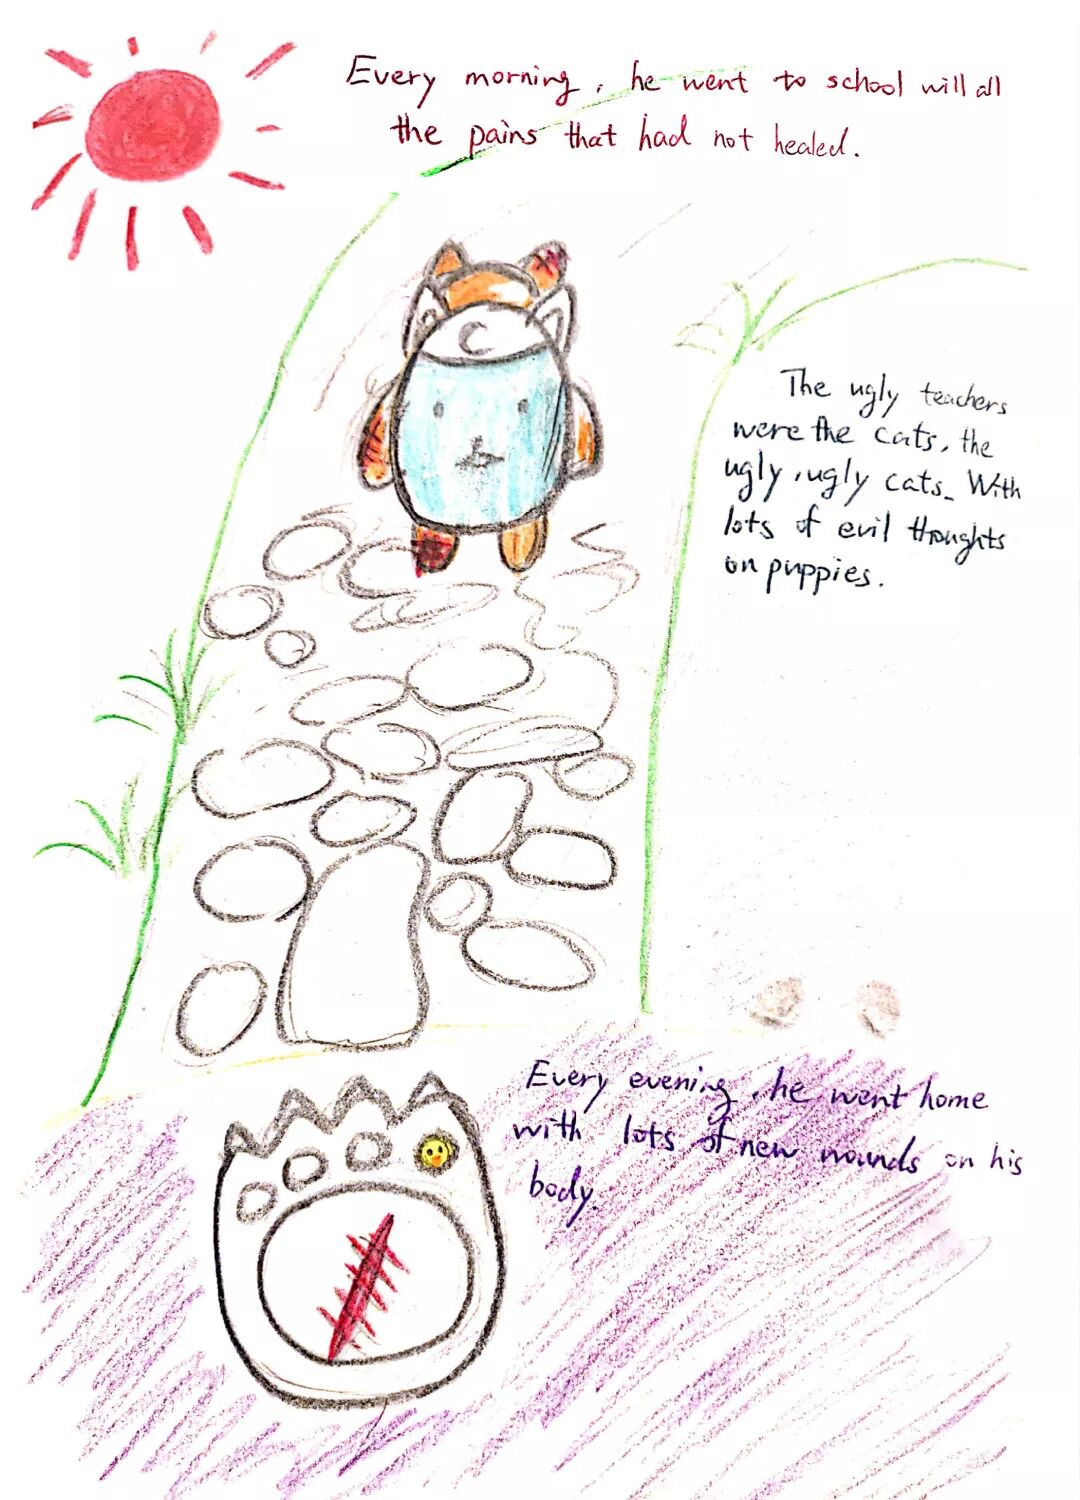 Every morning, he went to school will all
the pains that had not healed.
The ugly teachers
were the cats, the
ugly, ugly cats. With
lots of evil thoughts
on puppies.
Every evening, he went home
with lots of new wounds on his
body.